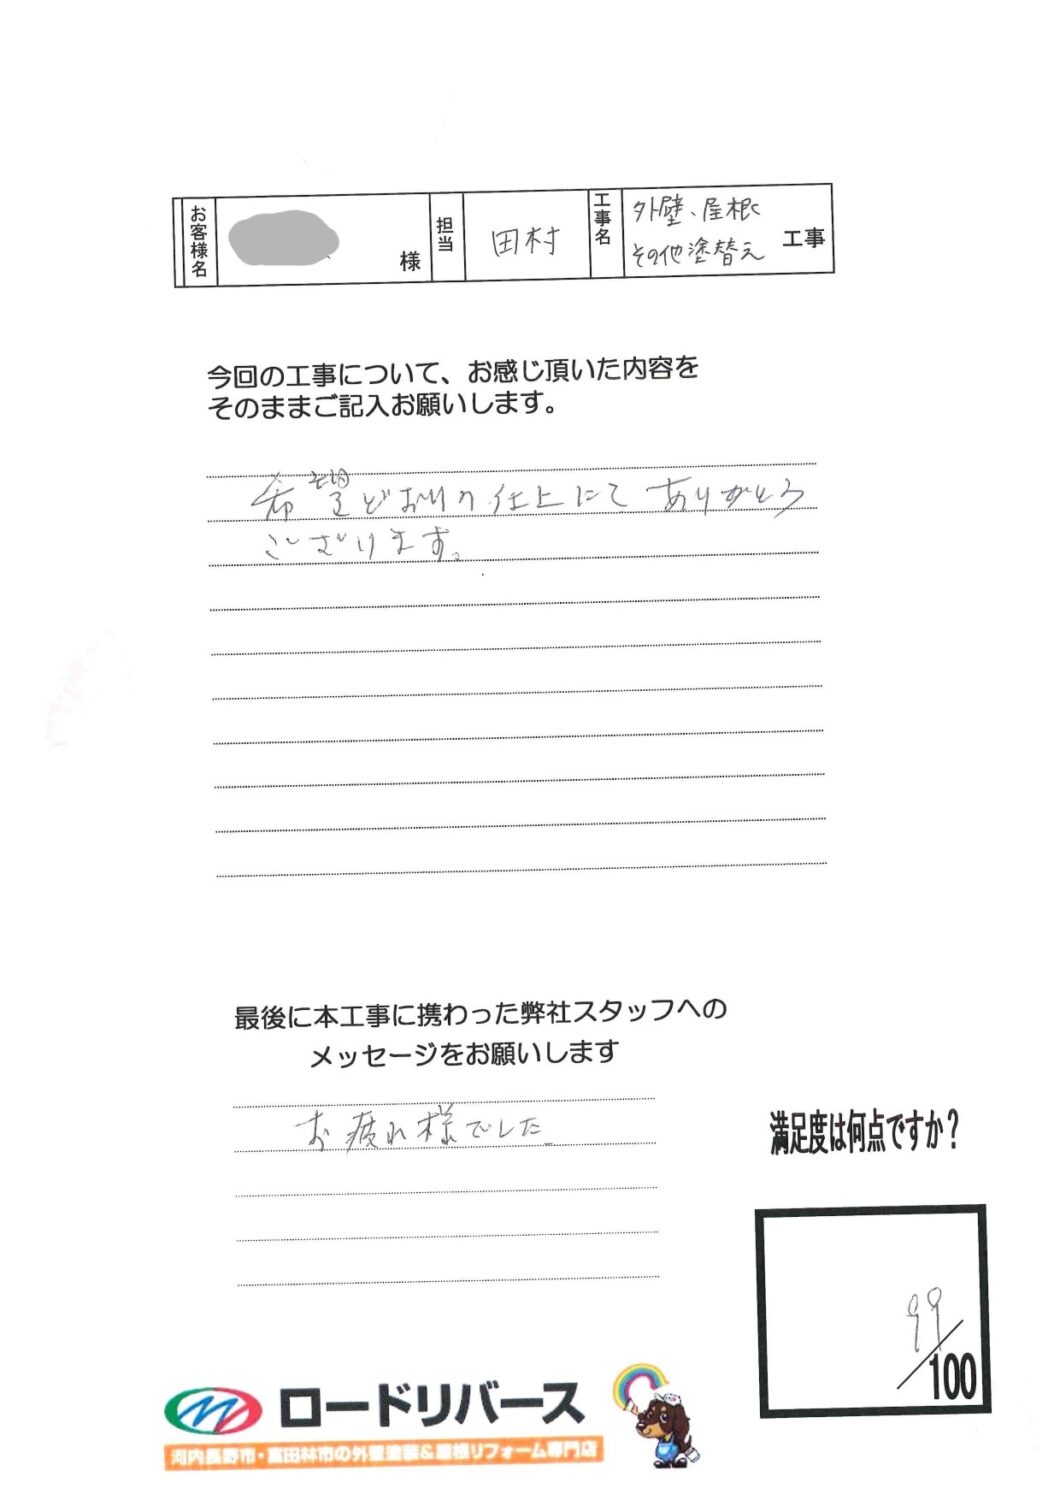 お客様名 様 担当 田村 工事名 外壁、屋根 その他塗替え 工事
今回の工事について、お感じ頂いた内容を
そのままご記入お願いします。
希望どおりの仕上にて ありがとう
ございます。
最後に本工事に携わった弊社スタッフへの
メッセージをお願いします
お疲れ様でした
満足度は何点ですか?
99/100
ロードリバース
河内長野市・富田林市の外壁塗装&屋根リフォーム専門店